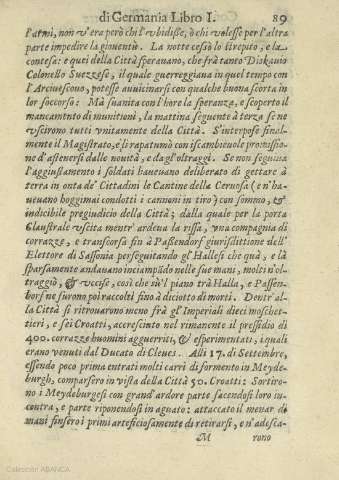 di Germania Libro I. 89
l'armi, non v'era però chi l'vbidisse, ò chi volesse per l'altra
parte impedire la giouentù. La notte cessò lo strepito, e la
contesa: e quei della Città sperauano, che frà tanto Diskauio
Colonello Suezzese, il quale guerreggiaua in quel tempo con
l'Arciuescouo, potesse auuicinarsi con qualche buona scorta in
lor soccorso: Mà suanita con l'hore la speranza, e scoperto il
mancamento di munitioni, la mattina seguente à terza se ne
vscirono tutti vnitamente della Città. S'interpose final-
mente il Magistrato, e li rapatumò con iscambieuole promissio-
ne d'astenersi dalle nouità, e dagl'oltraggi. Se non seguiua
l'aggiustamento i soldati haueuano deliberato di gettare à
terra in onta de' Cittadini le Cantine della Ceruosa (e n'ha-
ueuano hoggimai condotti i cannoni in tiro) con sommo, &
indicibile pregiudicio della Città; dalla quale per la porta
Claustrale vscita mentr' ardeua la rissa, vna compagnia di
corrazze, e transcorsa fin à Passendorf giurisdittione dell'
Elettore di Sassonia perseguitando gl'Hallesi che quà, e là
sparsamente andauano inciampādo nelle sue mani, molti n'ol-
traggiò, & vccise, così che sù'l piano trà Halla, e Passen-
dorf ne furono poi raccolti fino à diciotto di morti. Dentr'al-
la Città si ritrouarono meno frà gl'Imperiali dieci moschet-
tieri, e sei Croatti, accresciuto nel rimanente il pressidio di
400. corrazze huomini agguerriti, & esperimentati, i quali
erano venuti dal Ducato di Cleues. Alli 17. di Settembre,
essendo poco prima entrati molti carri di formento in Meyde-
burgh, comparsero in vista della Città 50. Croatti: Sortiro-
no i Meydeburgesi con grand'ardore parte facendosi loro in-
contra, e parte riponendosi in aguato: attaccato il menar di
mani finsero i primi arteficiosamente di retirarsi, e n'adesca-
M rono
Colección ABANCA